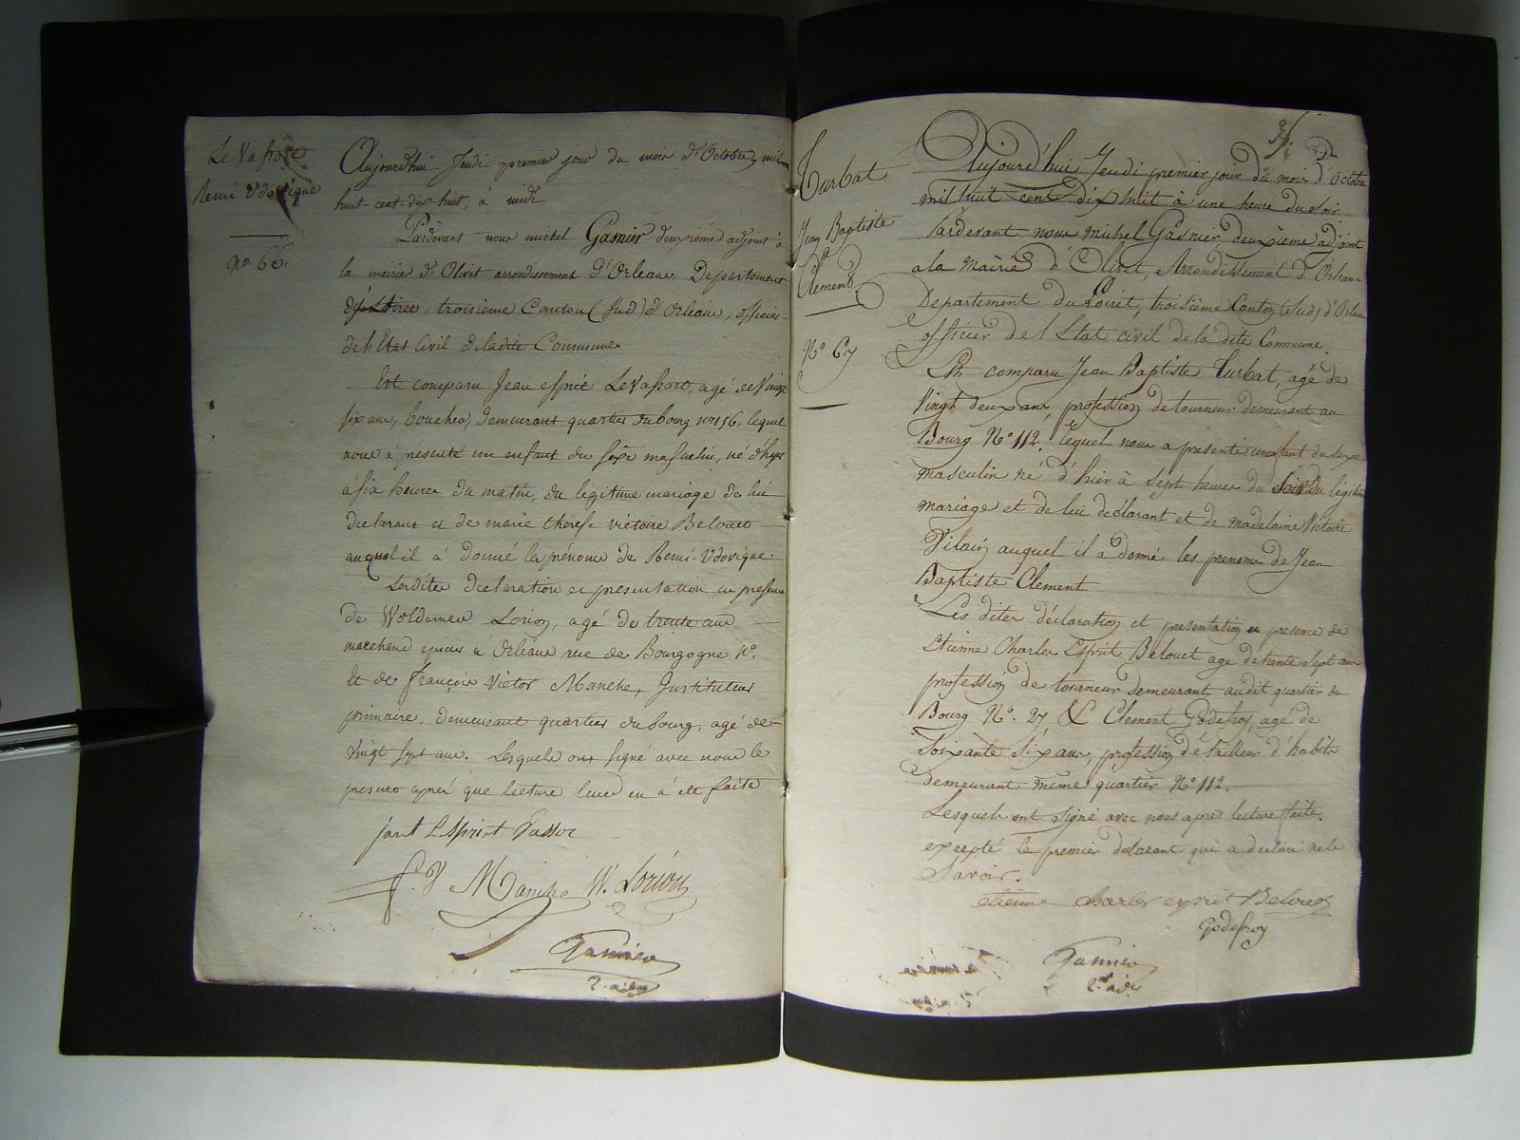 Le Vafsort
Remi Udovique
N° 66.
Aujourd'hui Jeudi premier jour du mois d'Octobre mil
huit-cent-dix-huit, à midi
Pardevant nous michel Gasnier deuxième adjoint à
la mairie d'Olivet arrondissement d'Orléans Departement
du Loiret, troisieme Canton (Sud) d'Orléans, officier
de l'Etat Civil de ladite Commune
Est comparu Jean esprit Levafsort, agé de Vingt
six ans, boucher, demeurant quartier du bourg n° 156, lequel
nous à presenté un enfant du sexe masculin, né d'hyer
à six heures du matin, du légitime mariage de lui
declarant et de marie thérèse victoire Belouet
auquel il à donné les prénoms de Remi-Udovique.
Lesdites declaration et presentation en presence
de Woldemer Lorion, agé de trente ans
marchand epicier à Orléans rue de Bourgogne N°.
Et de François Victor Manche, Instituteur
primaire, demeurant quartier du bourg, agé de
vingt sept ans. Lesquels ont signé avec nous le
present après que lecture leur en à été faite
jant Esprit Vassor
f. V Manche W. Lorion
Gasnier
2. adj
Turbat
Jean Baptiste
Clement
N° 67
Aujourd'hui Jeudi premier jour du mois d'Octobre
mil huit cent dix huit à une heure du soir
Pardevant nous Michel Gasnier deuxieme adjoint
a la Mairie d'Olivet, Arrondissement d'Orleans
Departement du Loiret, troisième Canton (sud) d'Orleans
officier de l'Etat civil de la dite Commune.
Est comparu Jean Baptiste Turbat, agé de
Vingt deux ans, profession de tourneur demeurant au
Bourg N° 112. lequel nous a presenté un enfant du sexe
masculin né d'hier à sept heures du soir du légitime
mariage et de lui déclarant et de madelaine Victoire
Pilain auquel il a donné les prenoms de Jean
Baptiste Clement
Les dites déclaration et presentation en presence de
Etienne Charles Esprit Belouet age de trente sept ans
profession de tourneur demeurant audit quartier du
Bourg N°. 27 & Clement Godefroy, agé de
Soixante Six ans, profession de tailleur d'habits
demeurant même quartier N° 112.
Lesquels ont signé avec nous apres lecture faite.
excepté le premier déclarant qui a declaré ne le
Savoir.
etienne charles esprit Belouet
Godefroy
Gasnier
2.e adj.